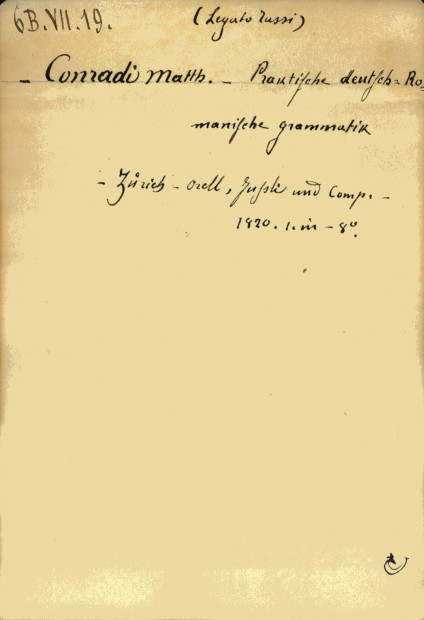 6B.VII.19.
(Legato Tussi)
- Conradi Matth. - Praktische deutsch=Ro=
manische grammatik
- Zürich - Orell, Fussli und Comp. -
1820. 1. in - 8º.